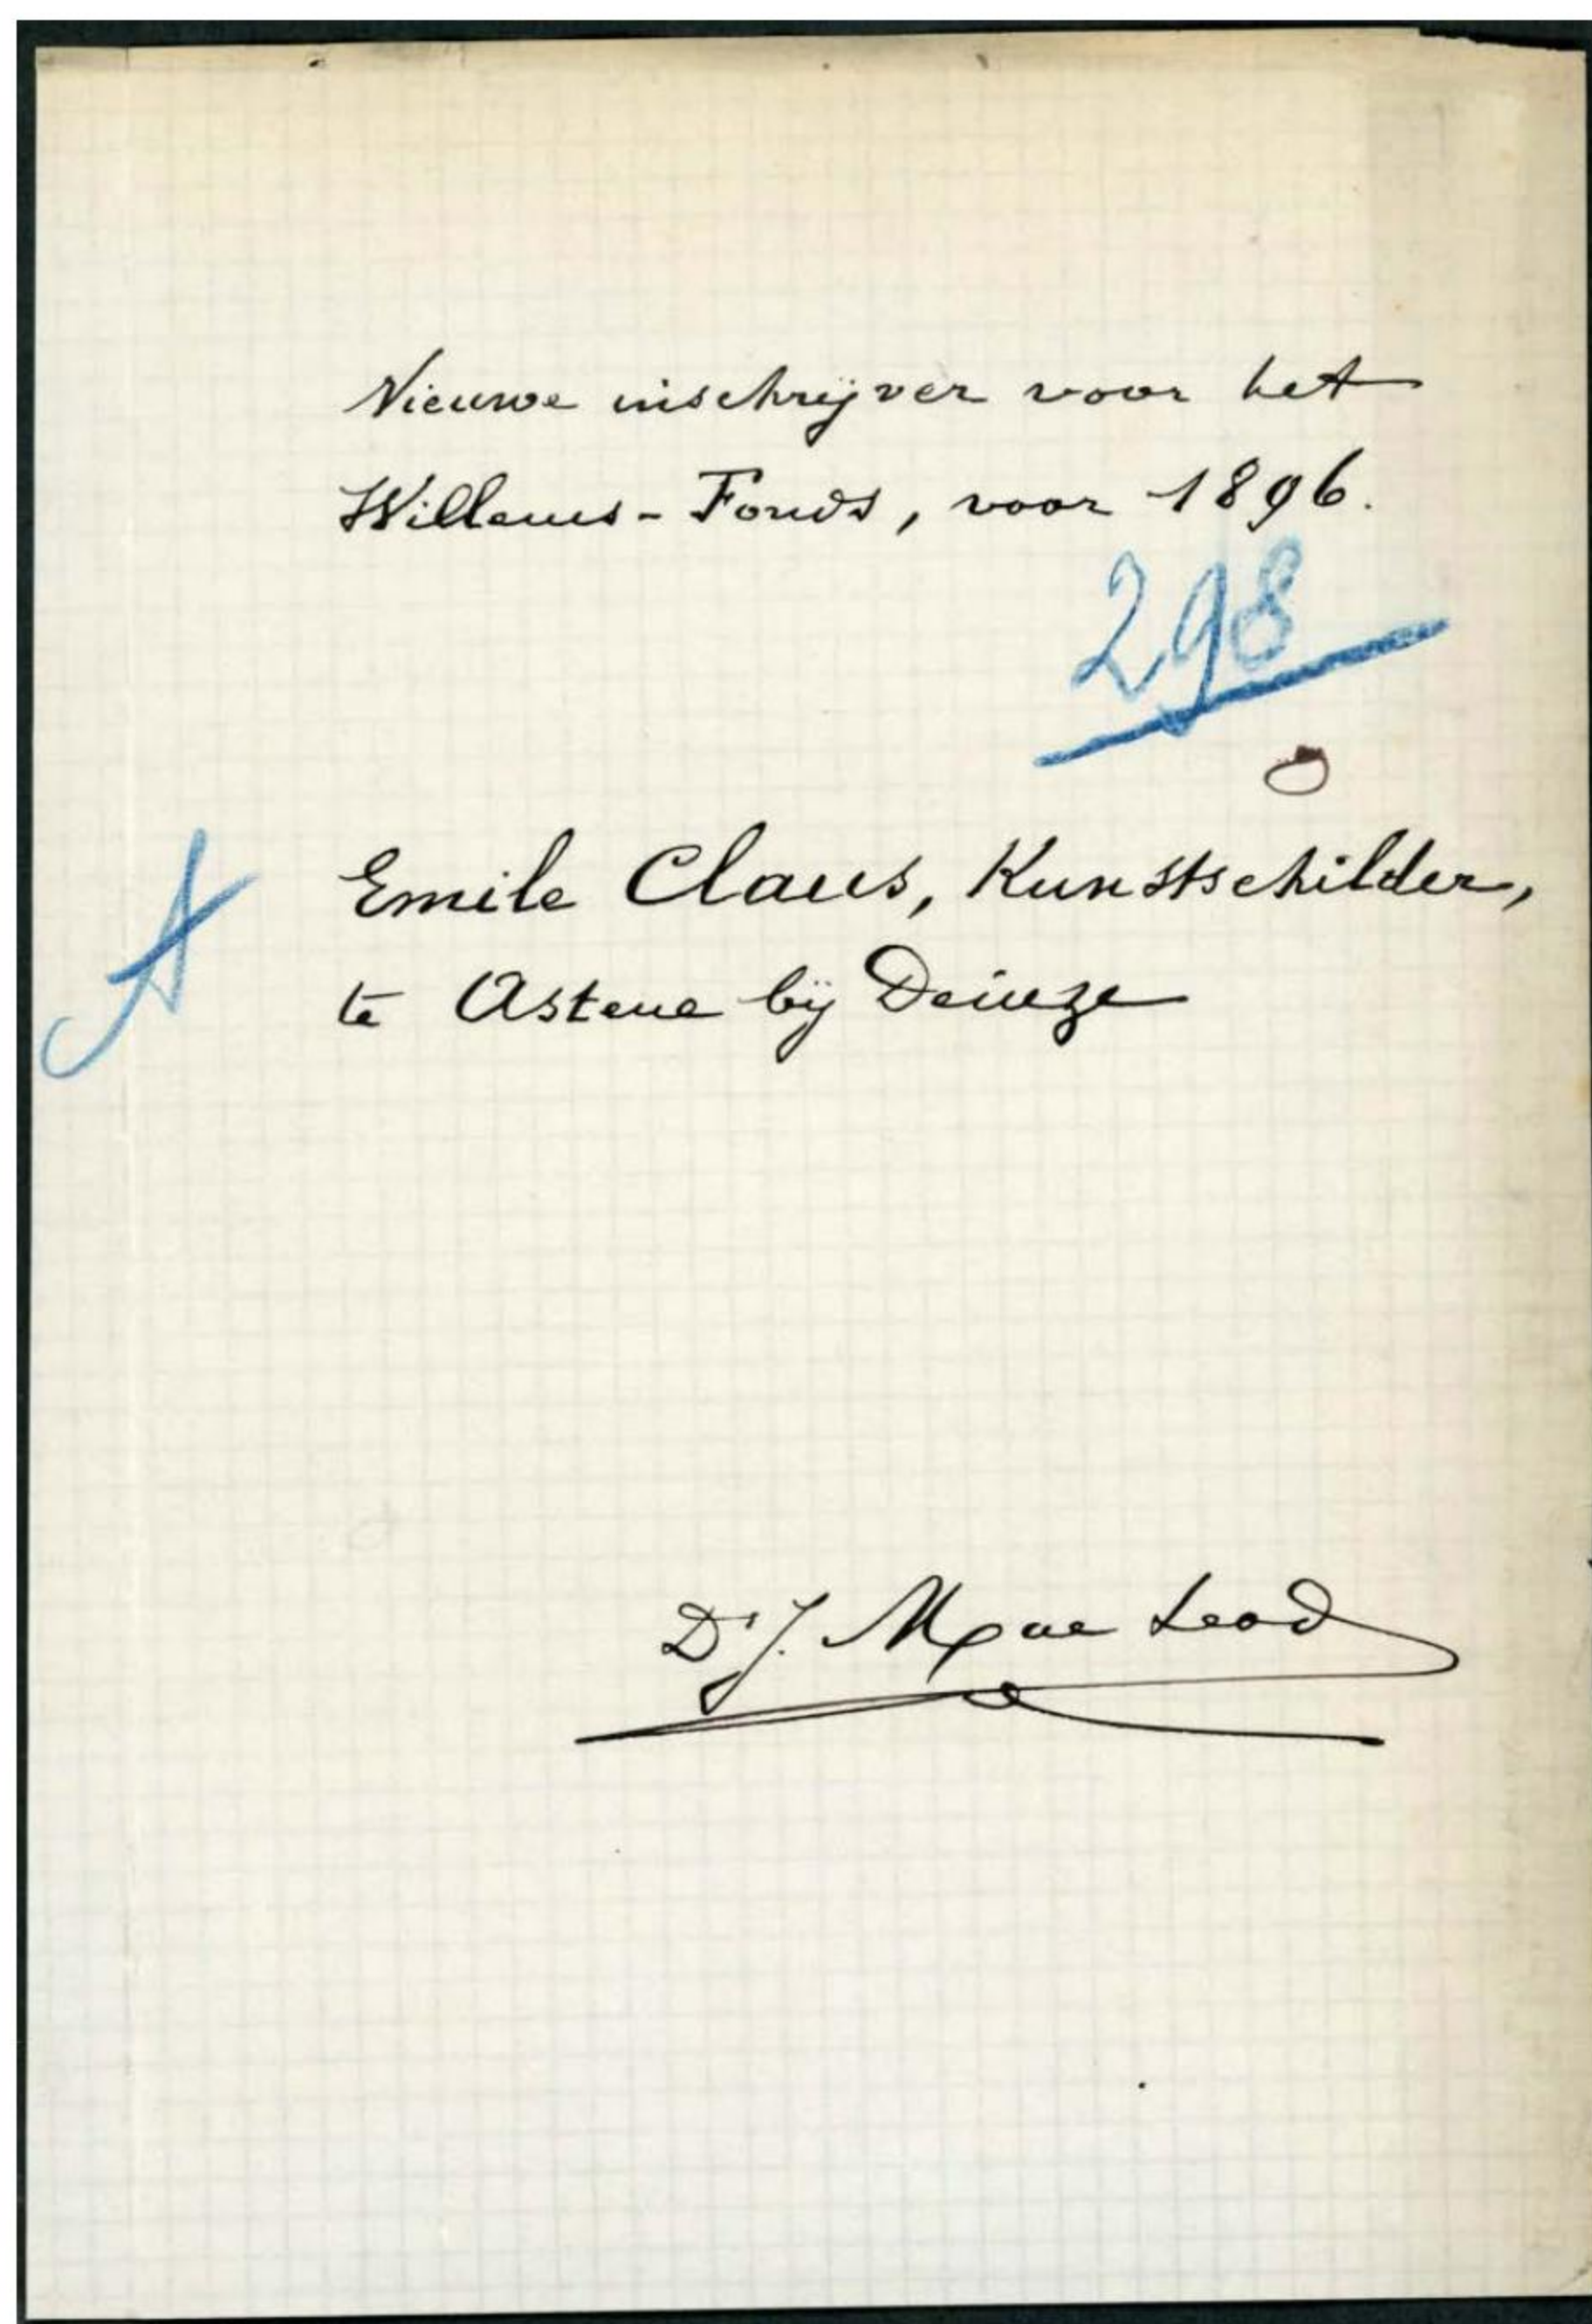 Nieuwe inschrijver voor het
Willems-Fonds, voor 1896.
298
A
Emile Claus, Kunstschilder,
te Astene bij Deinze
Dr J. Mac Leod